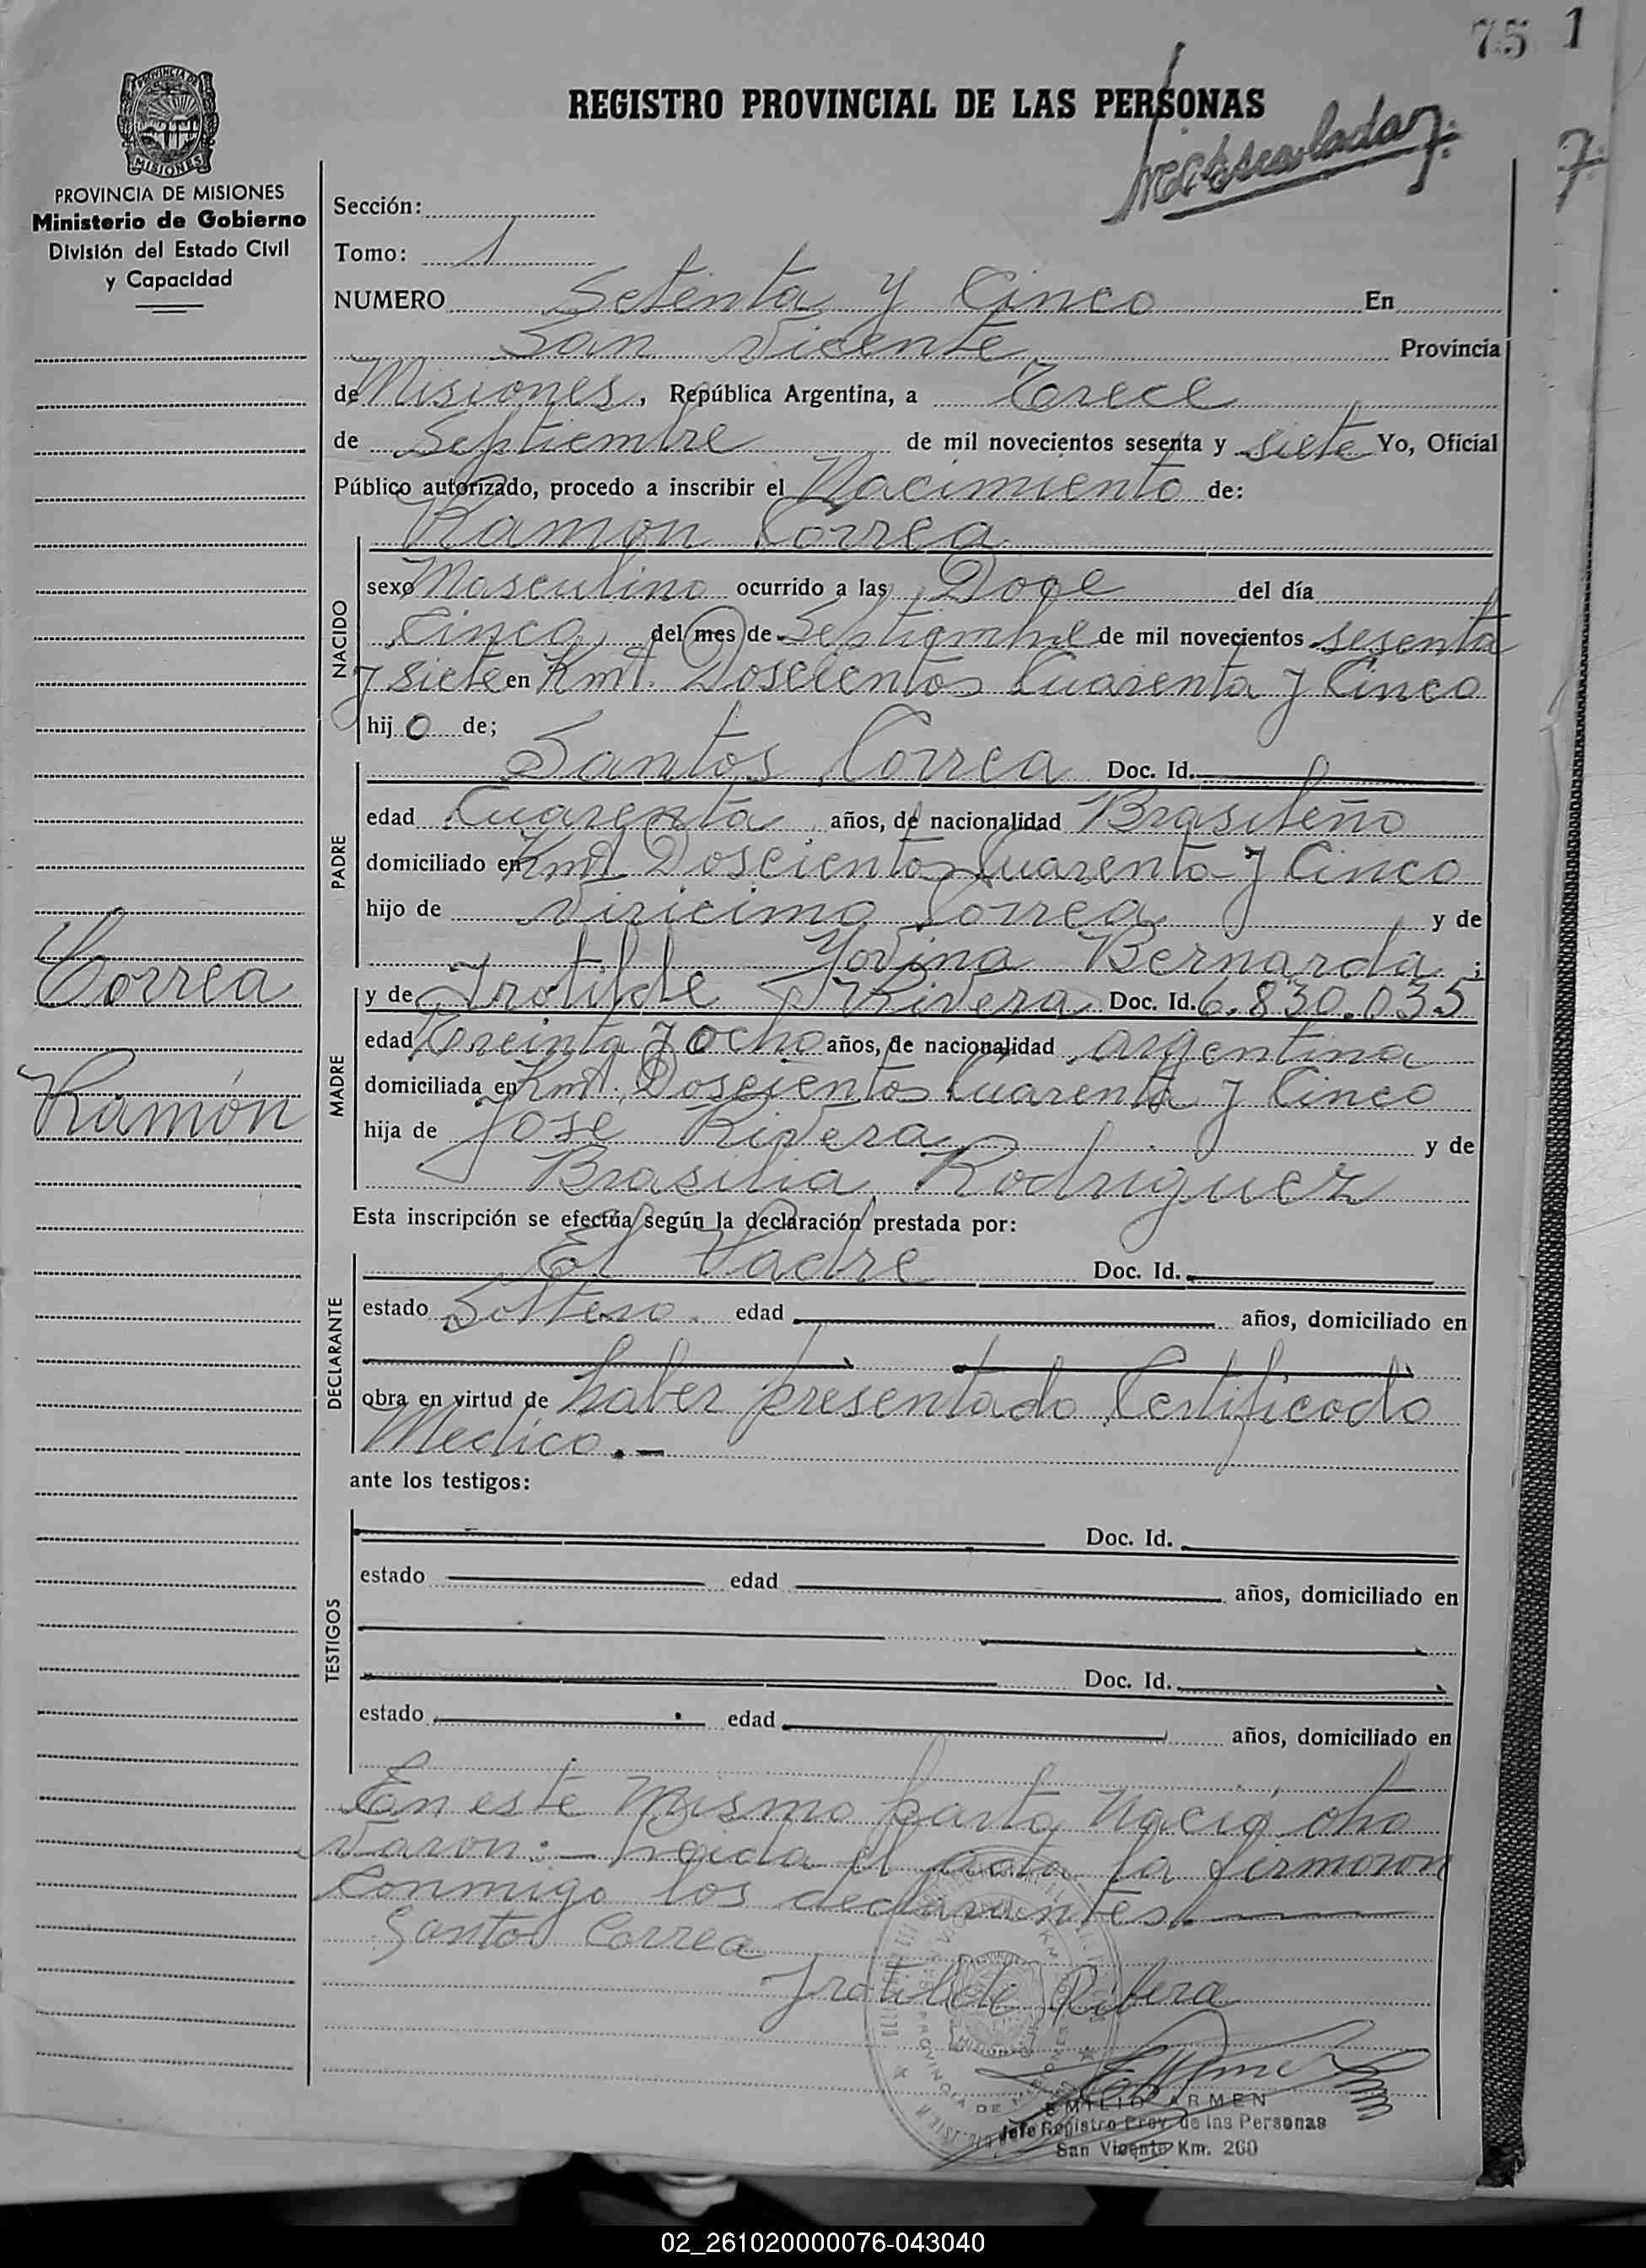 75 1
PROVINCIA DE MISIONES
REGISTRO PROVINCIAL DE LAS PERSONAS
7
PROVINCIA DE MISIONES
Ministerio de Gobierno
División del Estado Civil
y Capacidad
Sección:
Tomo: 1
NUMERO Setenta y Cinco En
San Vicente Provincia
de Misiones, República Argentina, a Trece
de Septiembre de mil novecientos sesenta y siete Yo, Oficial
Público autorizado, procedo a inscribir el Nacimiento de:
Ramon Correa
NACIDO
sexo Masculino ocurrido a las Doce del día
Cinco, del mes de Septiembre de mil novecientos sesenta
y siete en Kmt. Doscientos Cuarenta y Cinco
hijo de;
PADRE
Santos Correa Doc. Id.
edad Cuarenta años, de nacionalidad Brasileño
domiciliado en Kmt. Doscientos Cuarenta y Cinco
hijo de Viricimo Correa y de
Yovina Bernarda ;
Correa
Ramón
MADRE
y de Irotilde Rivera Doc. Id. 6.830.035
edad Treinta y ocho años, de nacionalidad argentina
domiciliada en Kmt. Doscientos Cuarenta y Cinco
hija de Jose Rivera y de
Brasilia Rodriguez
Esta inscripción se efectúa según la declaración prestada por:
DECLARANTE
El Padre Doc. Id.
estado Soltero. edad años, domiciliado en
obra en virtud de haber presentado Certificado
Medico.-
ante los testigos:
TESTIGOS
Doc. Id.
estado edad años, domiciliado en
Doc. Id.
estado edad años, domiciliado en
En este Mismo parto Nació otro
Varon:- leida el acta la firmaron
Conmigo los declarantes.
Santos Correa
Irotilde Ribera
EMILIO ARMEN
Jefe Registro Prov. de las Personas
San Vicente Km. 260
02_261020000076-043040